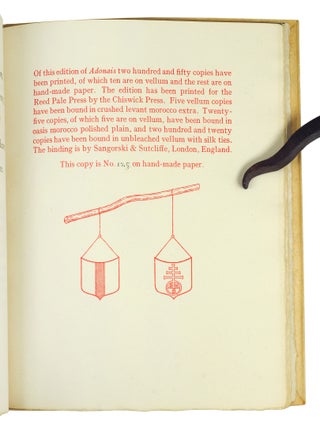 Of this edition of Adonais two hundred and fifty copies have
been printed, of which ten are on vellum and the rest are on
hand-made paper. The edition has been printed for the
Reed Pale Press by the Chiswick Press. Five vellum copies
have been bound in crushed levant morocco extra. Twenty-
five copies, of which five are on vellum, have been bound in
oasis morocco polished plain, and two hundred and twenty
copies have been bound in unbleached vellum with silk ties.
The binding is by Sangorski & Sutcliffe, London, England.
This copy is No. 125 on hand-made paper.